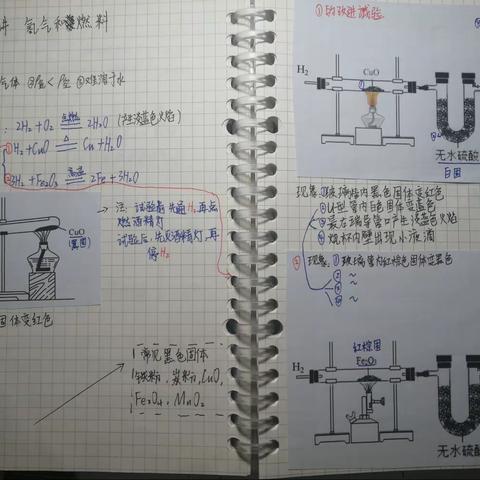 讲 氢气和燃料
气体 ②ρ氢<ρ空 ③难溶于水
: 2H₂+O₂ 点燃 2H₂O (产生淡蓝色火焰)
①H₂+CuO △ Cu+H₂O
②3H₂+Fe₂O₃ 高温 2Fe+3H₂O
注: 试验前先通H₂,再点
燃酒精灯
试验后,先灭酒精灯,再
停H₂
CuO
(黑固)
固体变红色
常见黑色固体
铁粉,炭粉,CuO,
Fe₃O₄,MnO₂
①的改进试验
H₂
CuO
无水硫酸
白固
现象:①玻璃管内黑色固体变红色
②U型管内白色固体变蓝色
③最右端导管口产生淡蓝色火焰
④烧杯内壁出现水液滴
② 现象:①玻璃管内红棕色固体变黑色
② ~
③ ~
④ ~
红棕固
Fe₂O₃
H₂
无水硫酸